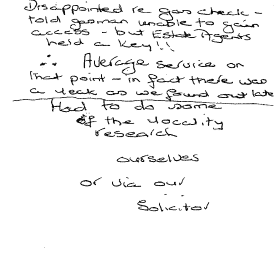 Disappointed re gas check -
told gasman unable to gain
access - but Estate Agents
held a key!!
∴ Average service on
that point - in fact there was
a leak as we found out late
Had to do some
of the locality
research
ourselves
or via our
Solicitor